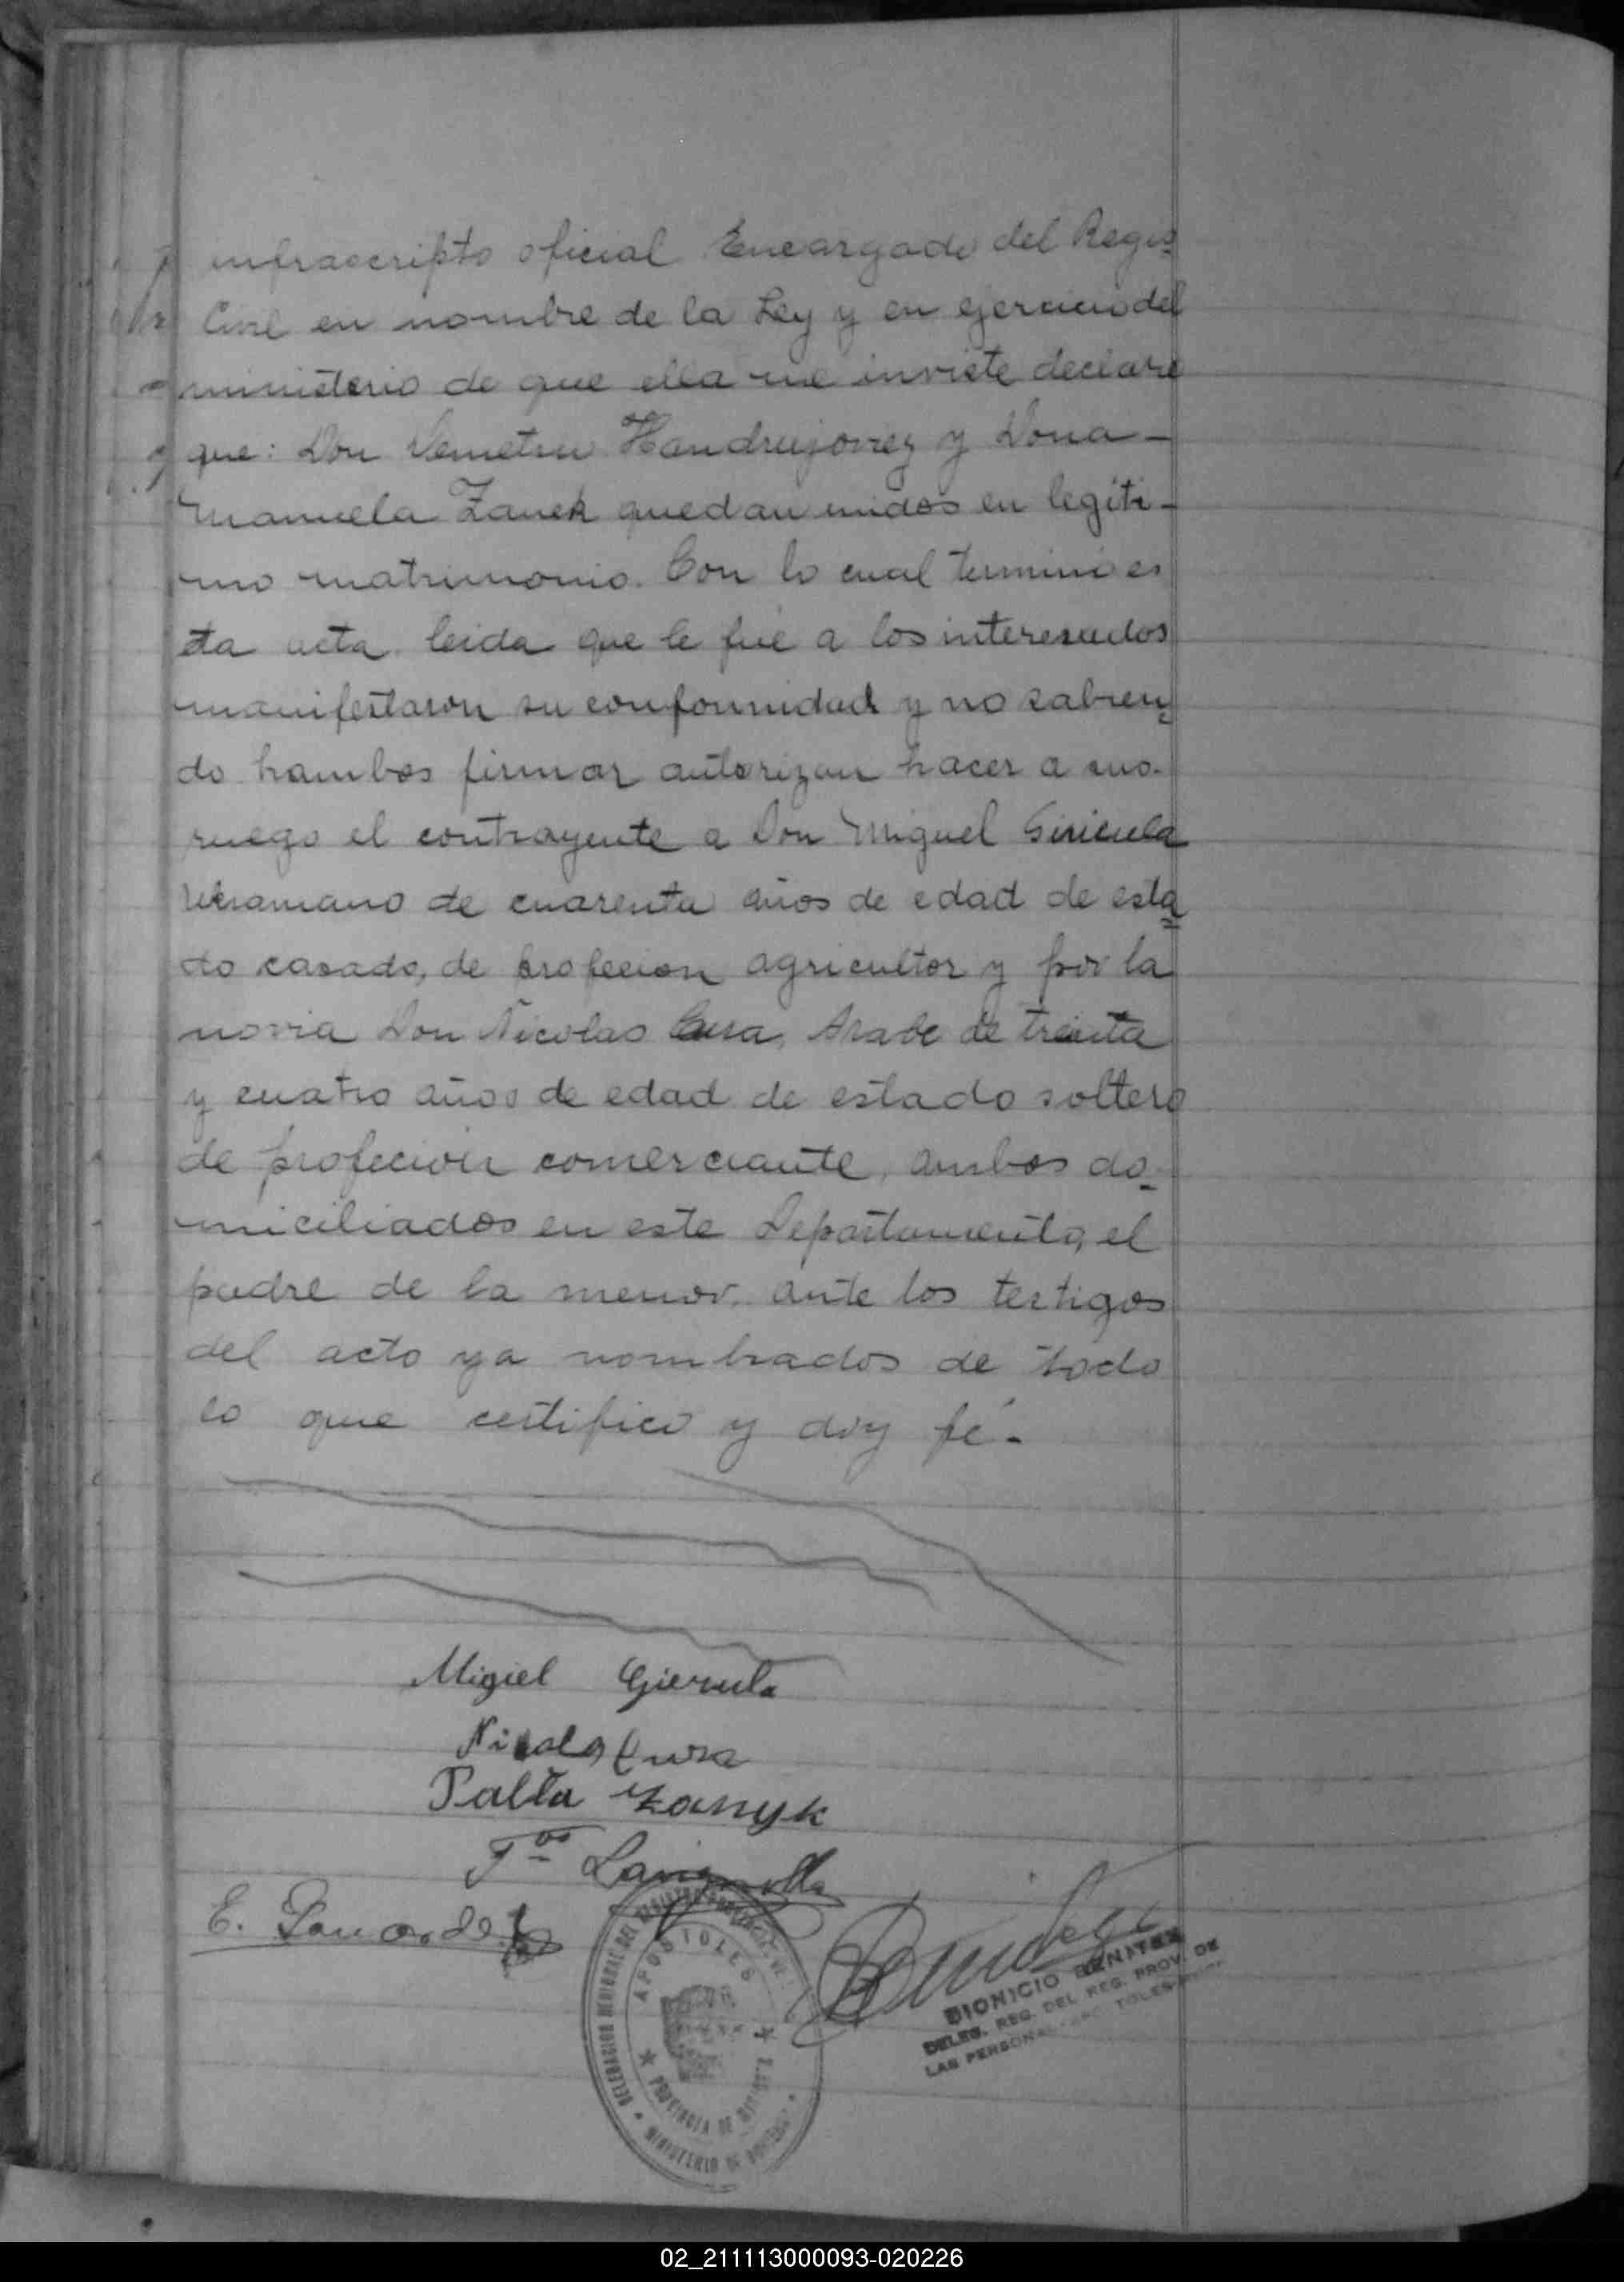 infrascripto oficial Encargado del Regis
Civil en nombre de la Ley y en ejercicio del
ministerio de que ella me inviste declaro
que: Don Demetrio Handrujoviez y Dona -
Manuela Zanek quedan unidos en legiti -
mo matrimonio. Con lo cual terminó es
ta acta leida que le fué a los interesados
manifestaron su conformidad y no sabien
do hambos firmar autorizan hacer a sus.
ruego el contrayente a Don Miguel
Ukraniano de cuarenta años de edad de esta
do casado, de profecion agricultor y por la
novia Don Nicolas Cura, Arabe de treinta
y cuatro años de edad de estado soltero
de profecion comerciante, ambos do-
miciliados en este Departamento, el
padre de la menor, ante los testigos
del acto ya nombrados de todo
lo que certifico y doy fé. -
Migiel Gierula
Nicola Cura
Palta Zanyk
E.
APOSTOLES
PROVINCIA DE MISIONES
MINISTERIO DE GOBIERNO
DIONICIO BENITEZ
DELEG. REG. DEL REG. PROV. DE
LAS PERSONAS
02_211113000093-020226